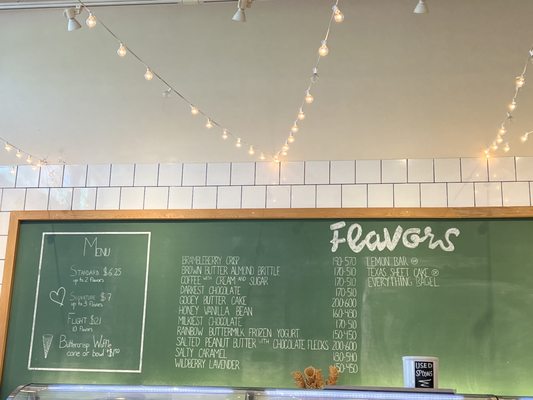 MENU
STANDARD $6.25
up to 2 flavors
SIGNATURE $7
up to 3 flavors
FLIGHT $21
10 flavors
BUTTERCRISP Waffle
cone or bowl $1.50
Flavors
BRAMBLEBERRY CRISP 190-570
BROWN BUTTER ALMOND BRITTLE 170-510
COFFEE WITH CREAM AND SUGAR 170-510
DARKEST CHOCOLATE 170-510
GOOEY BUTTER CAKE 200-600
HONEY VANILLA BEAN 160-480
MILKIEST CHOCOLATE 170-510
RAINBOW BUTTERMILK FROZEN YOGURT 150-450
SALTED PEANUT BUTTER WITH CHOCOLATE FLECKS 200-600
SALTY CARAMEL 180-540
WILDBERRY LAVENDER 150-450
LEMON BAR
TEXAS SHEET CAKE
EVERYTHING BAGEL
USED
SPOONS